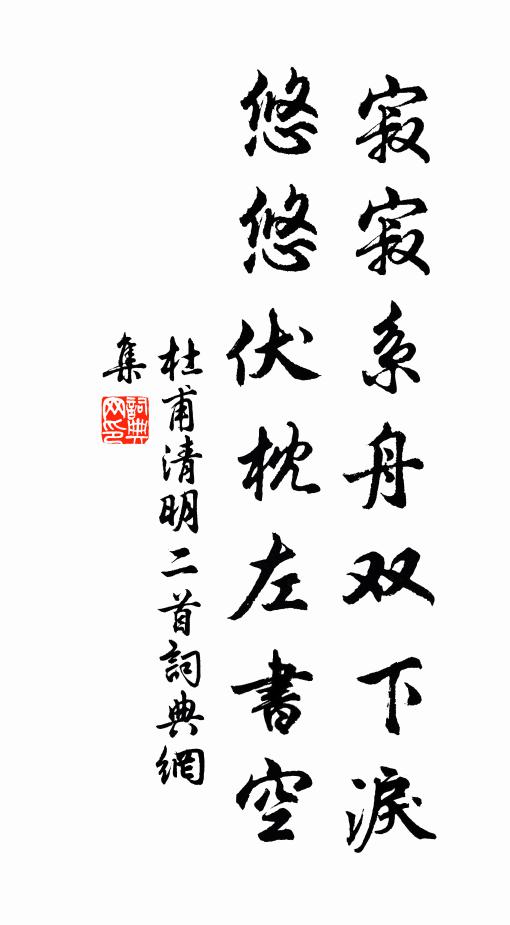 寂寂系舟双下淚
悠悠伏枕左書空
杜甫清明二首詞典網
集
詞典
网印